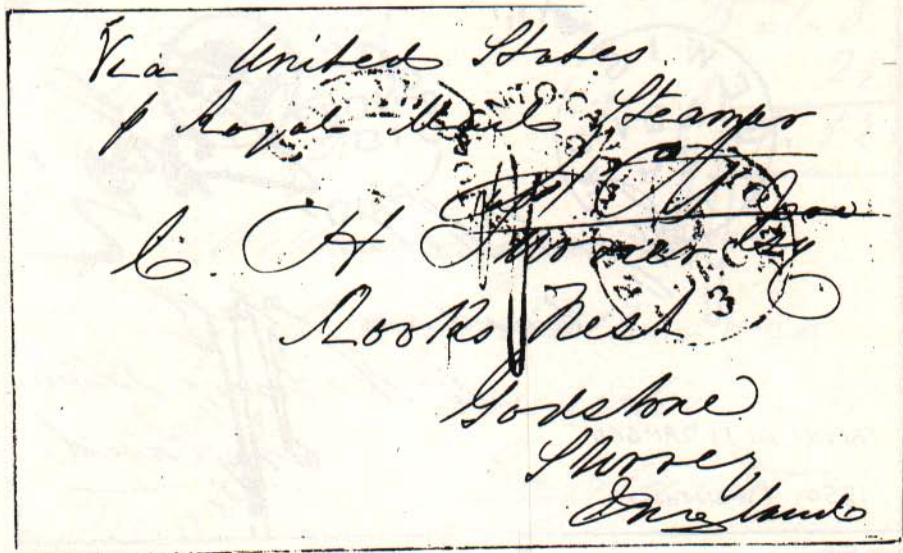 Via United States
p Royal Mail Steamer
C. H Turner Esq
Rooks Nest
Godstone
Surrey
England